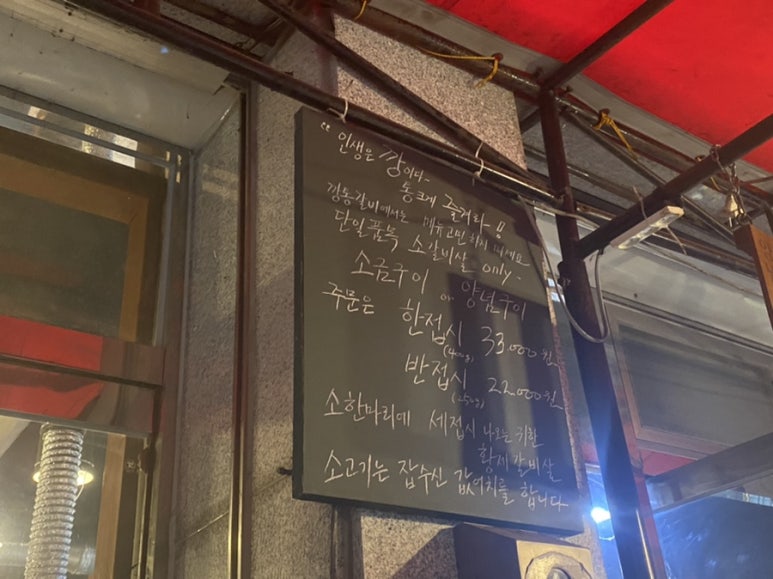 "인생은 깡이다~
통크게 즐겨라!!
깡통갈비에서는 메뉴고민하지 마세요
단일품목 소갈비살 only~
소금구이 or 양념구이
주문은 한접시 33.000원
(400g)
반접시 22.000원
(250g)
소한마리에 세접시 나오는 귀한
황제갈비살
소고기는 잡수신 값어치를 합니다